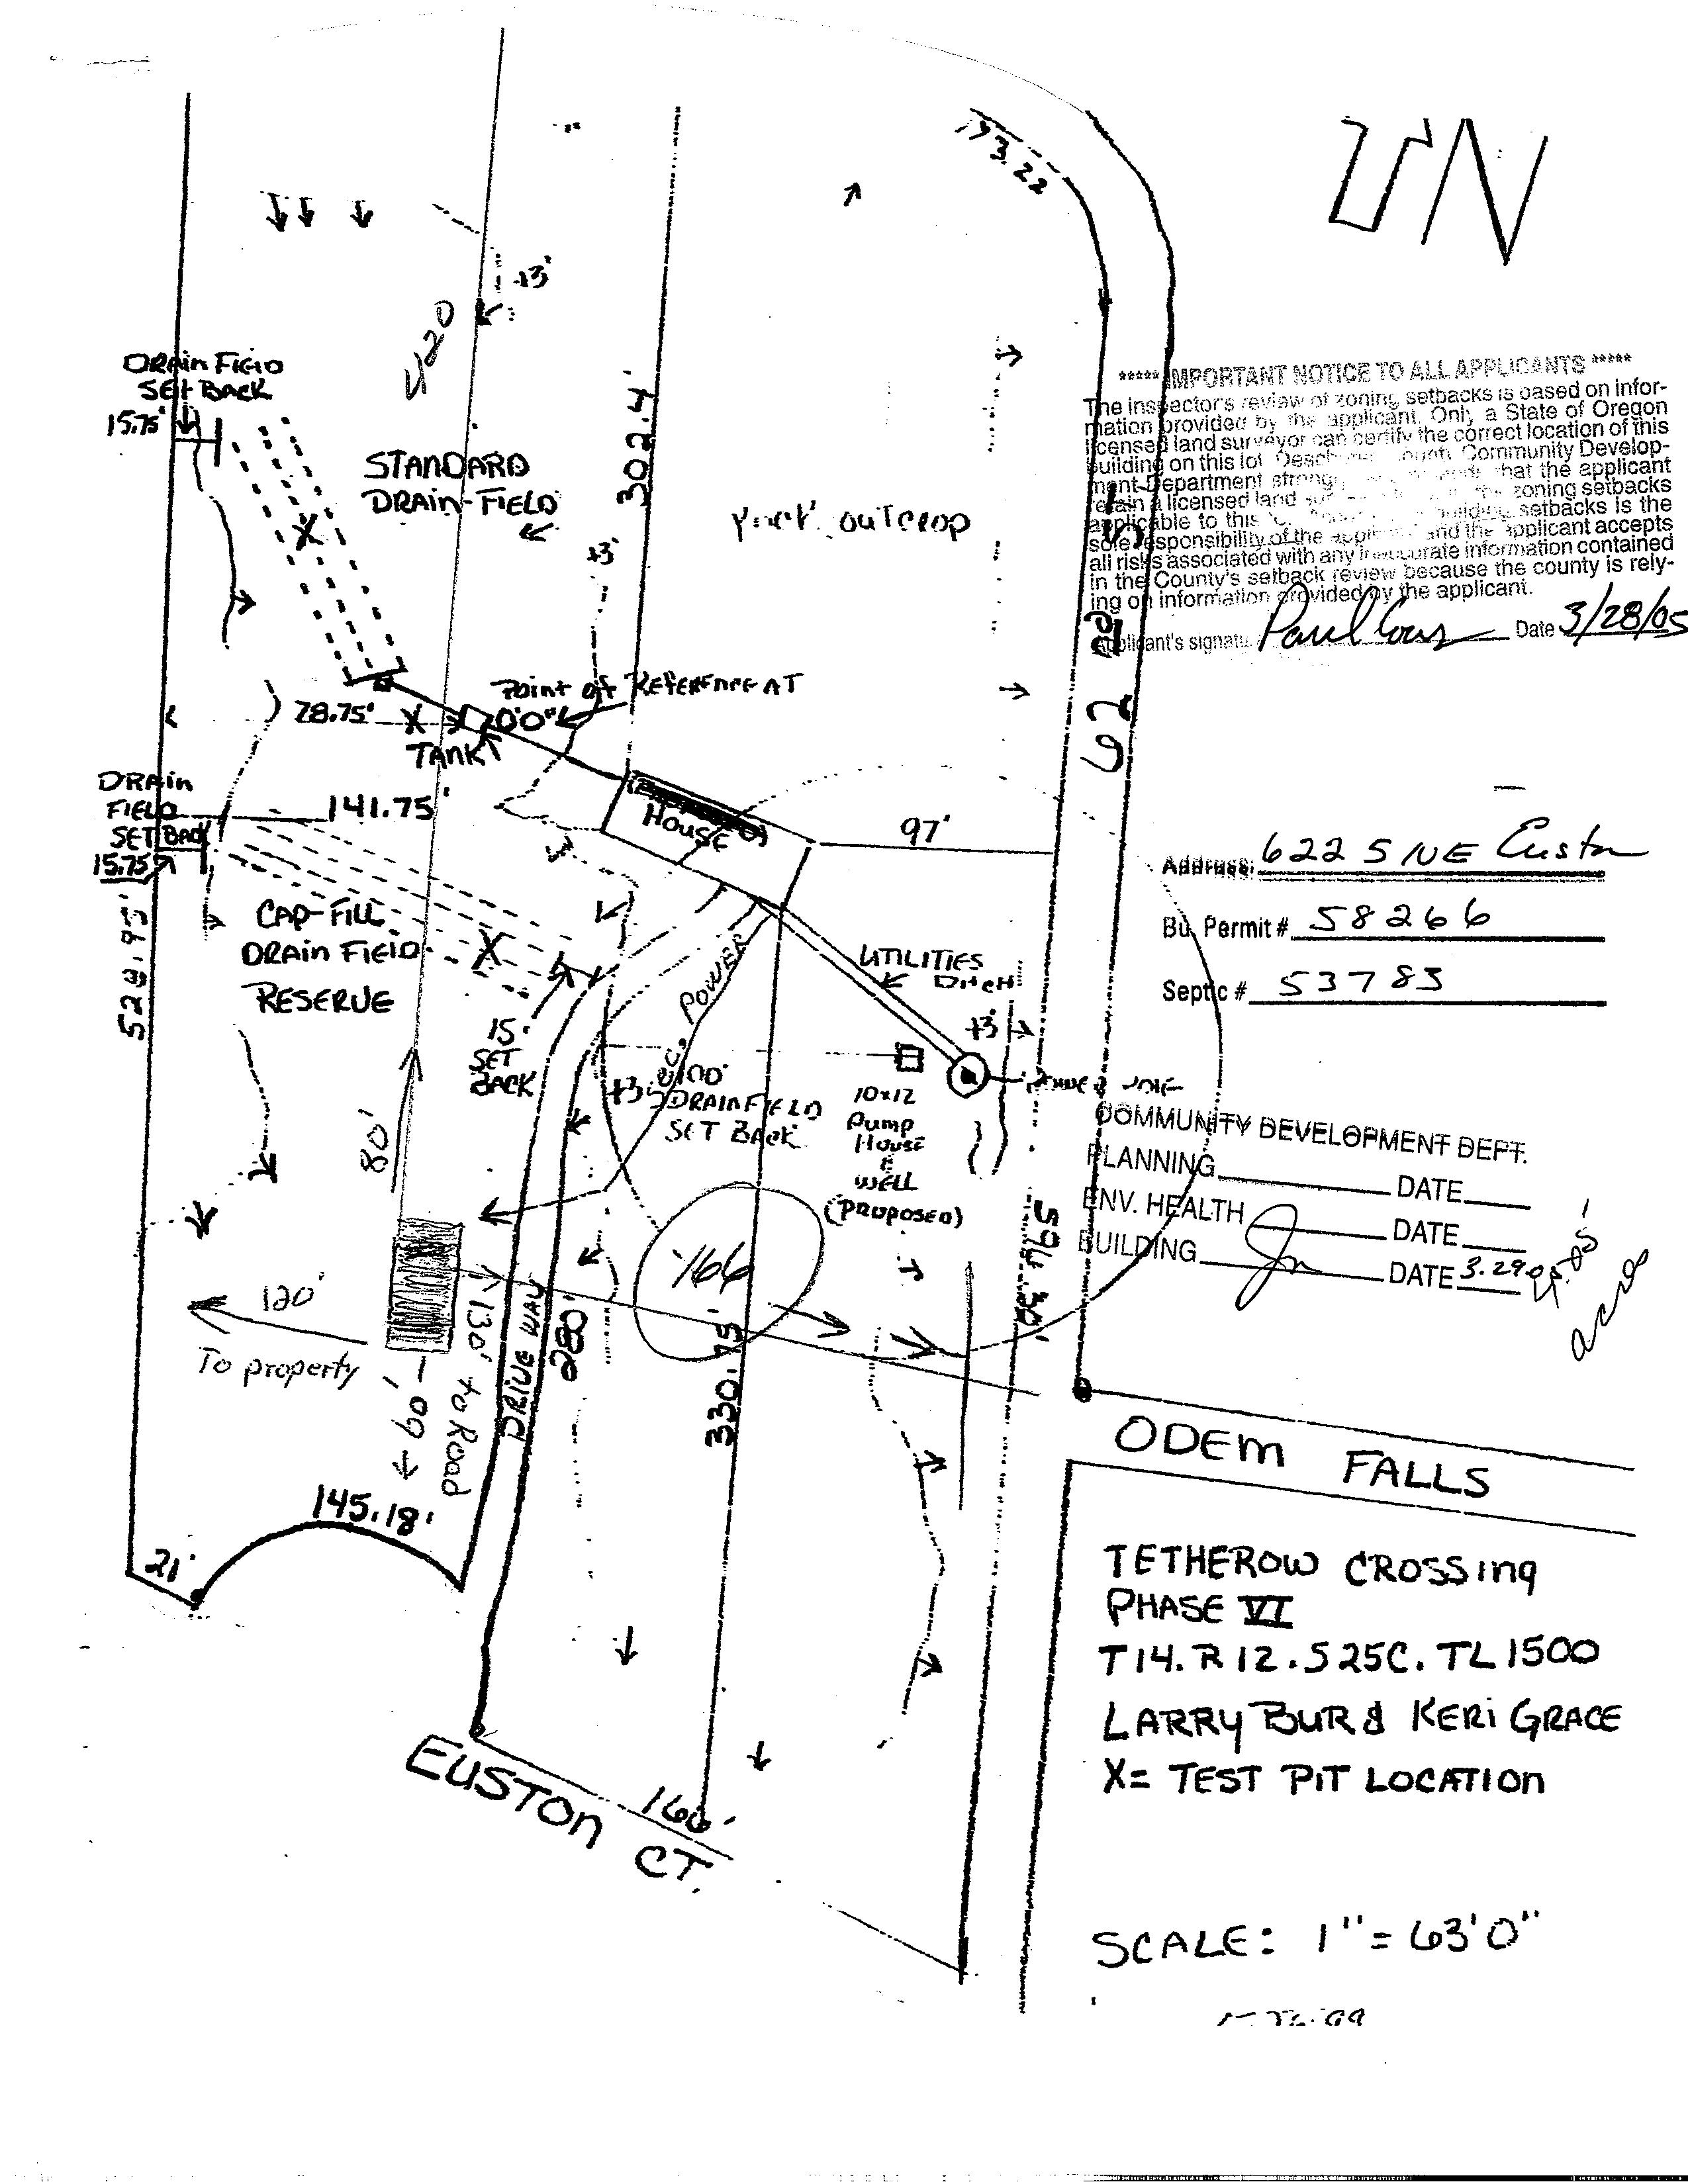 N
173.22
+3'
420
DRAIN FIELD
SET BACK
15.75'
STANDARD
DRAIN-FIELD
302.4'
+3'
outcrop
***** IMPORTANT NOTICE TO ALL APPLICANTS *****
The inspector's review of zoning setbacks is based on infor-
mation provided by the applicant. Only a State of Oregon
licensed land surveyor can certify the correct location of this
building on this lot. Community Develop-
ment Department that the applicant
retain a licensed land zoning setbacks
applicable to this setbacks is the
sole responsibility of the and the applicant accepts
all risks associated with any inaccurate information contained
in the County's setback review because the county is rely-
ing on information provided by the applicant.
Applicant's signatu Date 3/28/05
Point of REFERENCE AT
0'0"
78.75'
TANK
DRAIN
FIELD
SET BACK
15.75'
141.75'
HOUSE
97'
Address: 6225 NE Euston
Permit # 58266
Septic # 53783
528.95'
CAP-FILL
DRAIN FIELD
RESERVE
15'
SET
BACK
POWER
UTILITIES
DITCH
+3'
+3'
100'
DRAINFIELD
SET BACK
10x12
Pump
House
&
WELL
(PROPOSED)
COMMUNITY DEVELOPMENT DEPT.
PLANNING DATE
ENV. HEALTH DATE
BUILDING DATE 3.29.05
acres
80'
166
120'
To property
60'
130' to Road
DRIVE WAY
280'
330.75'
145.18'
21'
ODEM FALLS
EUSTON CT.
160'
TETHEROW CROSSING
PHASE VI
T14. R12. S25C. TL1500
LARRY BUR & KERI GRACE
X= TEST PIT LOCATION
SCALE: 1" = 63'0"